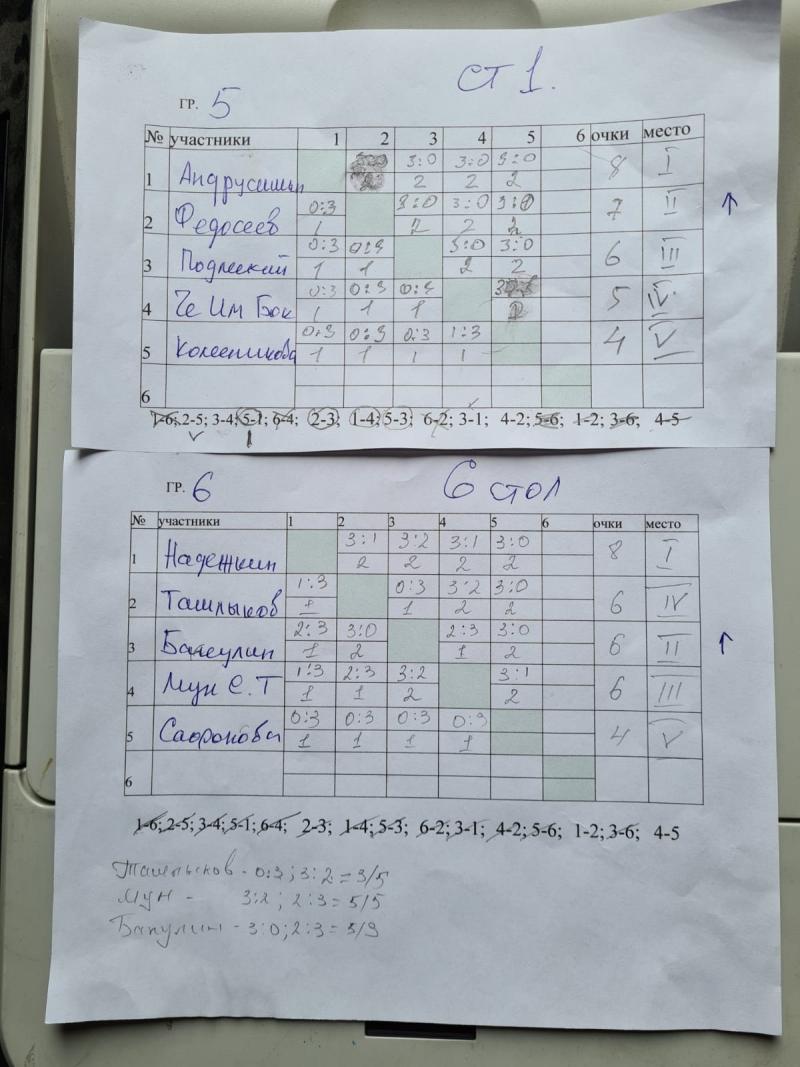 ГР. 5 СТ 1.
№ участники 1 2 3 4 5 6 очки место
3:0 3:0 3:0
1 Андрусишин 2 2 2 2 8 I
0:3 3:0 3:0 3:0
2 Федосеев 1 2 2 2 7 II
0:3 0:3 3:0 3:0
3 1 1 2 2 6 III
0:3 0:3 0:3
4 Че Им Бок 1 1 1 5 IV
0:3 0:3 0:3 1:3
5 Колесникова 1 1 1 1 4 V
6
1-6; 2-5; 3-4; 5-1; 6-4; 2-3; 1-4; 5-3; 6-2; 3-1; 4-2; 5-6; 1-2; 3-6; 4-5
ГР. 6 6 стол
№ участники 1 2 3 4 5 6 очки место
3:1 3:2 3:1 3:0
1 Надежкин 2 2 2 2 8 I
1:3 0:3 3:2 3:0
2 Ташлыков 1 1 2 2 6 IV
2:3 3:0 2:3 3:0
3 Бакулин 1 2 1 2 6 II
1:3 2:3 3:2 3:1
4 Мун С.Т 1 1 2 2 6 III
0:3 0:3 0:3 0:3
5 Сафронова 1 1 1 1 4 V
6
1-6; 2-5; 3-4; 5-1; 6-4; 2-3; 1-4; 5-3; 6-2; 3-1; 4-2; 5-6; 1-2; 3-6; 4-5
Ташлыков - 0:3; 3:2 = 3/5
Мун - 3:2; 2:3 = 5/5
Бакулин - 3:0; 2:3 = 5/3